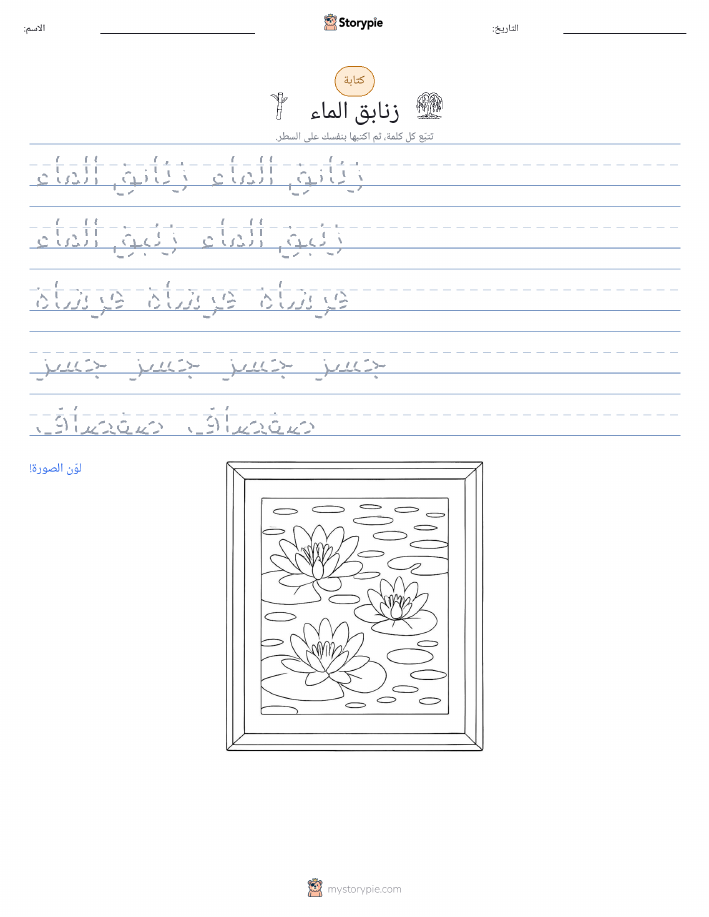 الاسم:
Storypie
التاريخ:
كتابة
زنابق الماء
تتبّع كل كلمة، ثم اكتبها بنفسك على السطر.
زنابق الماء زنابق الماء
زنبق الماء زنبق الماء
فرشاة فرشاة فرشاة
جسر جسر جسر جسر
صفصاف صفصاف
لوّن الصورة!
mystorypie.com